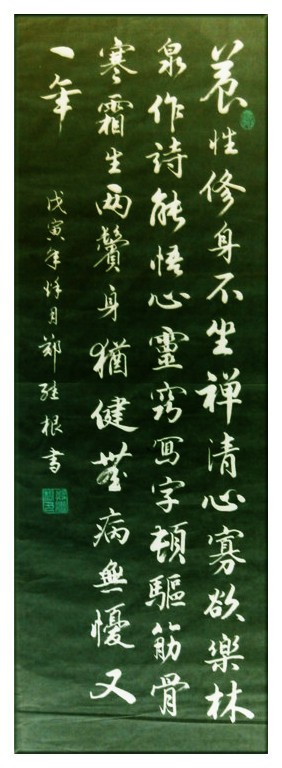 養性修身不坐禅清心寡欲樂林
泉作詩能悟心靈窍写字頓驅筋骨
寒霜生两鬢身猶健無病無憂又
一年
戊寅年 月鄭 根書